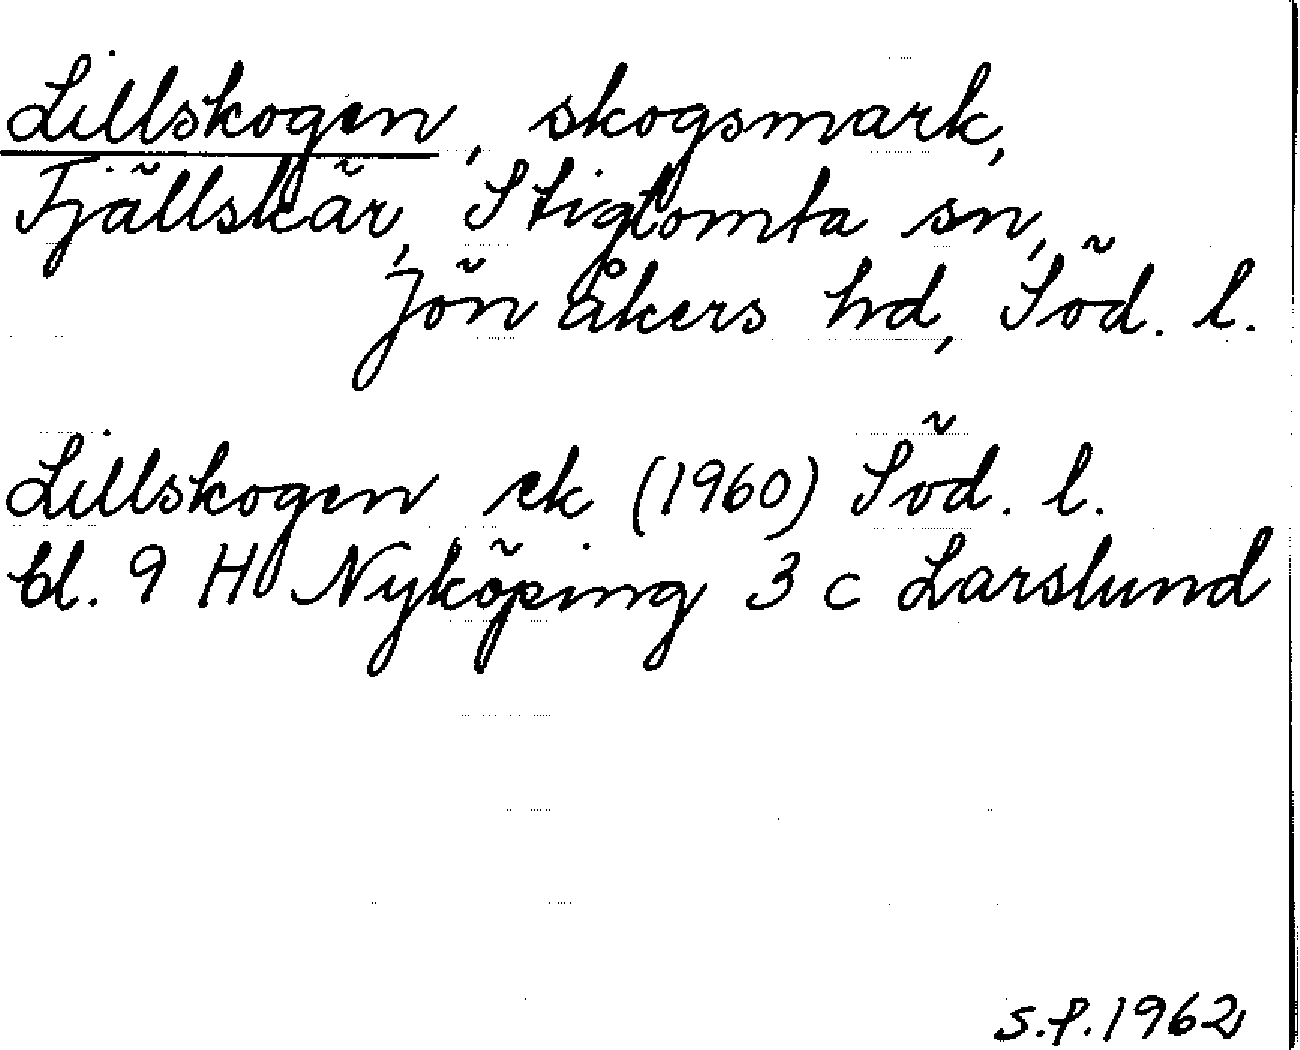 Lillskogen, skogsmark,
Fjällskär, Stigtomta sn,
Jönåkers hd, Söd. l.
Lillskogen ek (1960) Söd. l.
bl. 9 H Nyköping 3 c Larslund
S.P. 1962